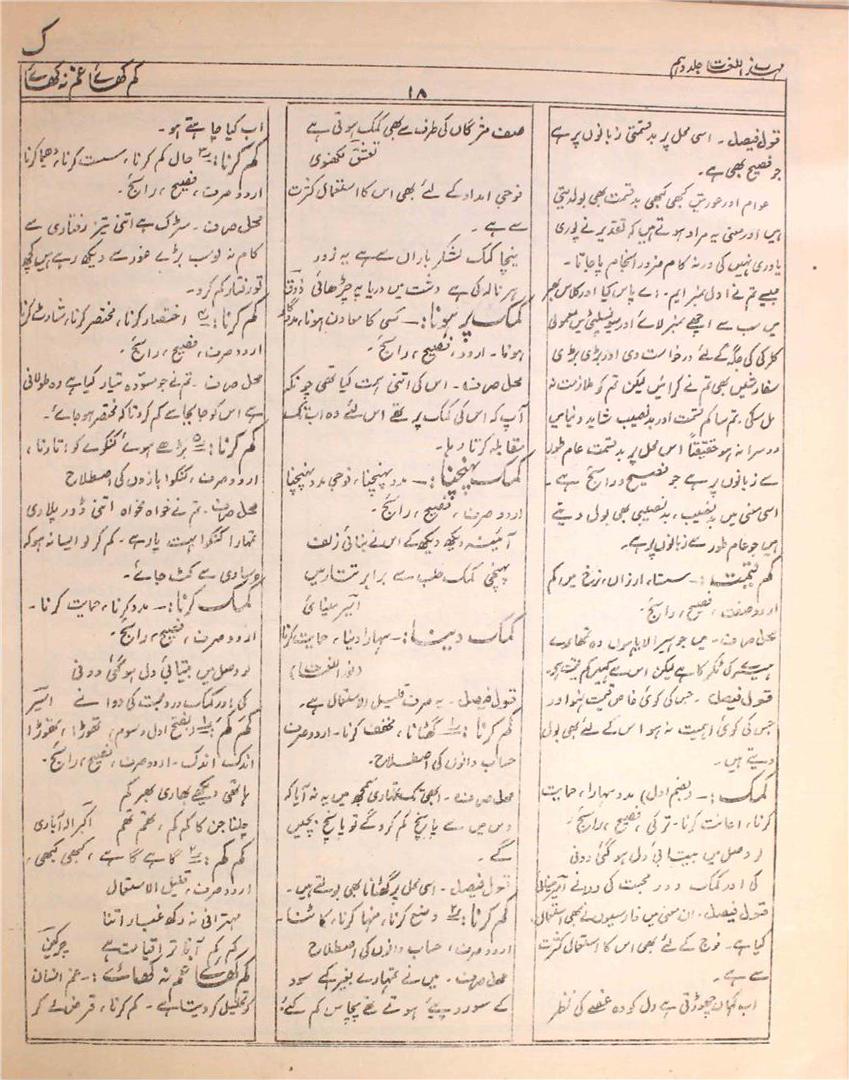 ک
مہذب اللغت جلد دہم
کم کھائے غم نہ کھائے
۱۸
قول فیصل ۔ اسی محل پر بدقسمتی زبانوں پر ہے
جو فصیح بھی ہے۔
عوام اور عورتیں کبھی کبھی بد قسمت بھی بول دیتی
ہیں اور معنی یہ مراد ہوتے ہیں کہ تقدیر نے پوری
یاوری نہیں کی ورنہ کام ضرور انجام پا جاتا۔
جیسے تم نے اول نمبر ایم۔ اے پاس کیا اور کلاس بھر
میں سب سے اچھے نمبر لائے اور میونسپلٹی میں معمولی
کلرکی کی جگہ کے لئے درخواست دی اور بڑی بڑی
سفارشیں بھی تم نے کرائیں لیکن تم کو ملازمت نہ
مل سکی۔ تم سا کم قسمت اور بد نصیب شاید دنیا میں
دوسرا نہ ہو حقیقتاً اس محل پر بد قسمت عام طور
سے زبانوں پر ہے جو فصیح و رائج ہے۔
اسی معنی میں بد نصیب، بد نصیبی بھی بول دیتے
ہیں جو عام طور سے زبانوں پر ہے۔
کم قیمت :۔ سستا، ارزاں، نرخ میں کم
اردو صفت، فصیح، رائج۔
محل صرف۔ میں جو ہیرا لایا ہوں وہ تمھارے
ہیرے کی ٹکر کا ہے لیکن اس سے کہیں کم قیمت ہے۔
قول فیصل ۔ جس کی کوئی خاص قیمت نہ ہو اور
جس کی کوئی اہمیت نہ ہو اس کے لئے بھی بول
دیتے ہیں۔
کمک :۔ (بضم اول) مدد، سہارا، حمایت
کرنا، اعانت کرنا۔ ترکی، فصیح، رائج۔
لو وصل میں بیتابئ دل ہو گئی دونی
کی اور کمک درد محبت کی دوا نے امیر مینائی
قول فیصل۔ ان معنی میں فارسیوں نے بھی استعمال
کیا ہے۔ فوج کے لئے بھی اس کا استعمال کثرت
سے ہے۔
اب کہاں چھوڑتی ہے دل کو وہ غصے کی نظر
صف مژگاں کی طرف سے بھی کمک ہوتی ہے
تعشق لکھنوی
فوجی امداد کے لئے بھی اس کا استعمال کثرت
سے ہے۔
پہنچا کمک لشکر باراں سے ہے یہ زور
ہر نالہ کی ہے دشت میں دریا پہ چڑھائی ذوق
کمک پر ہونا :۔ کسی کا معاون ہونا، مددگار
ہونا۔ اردو، فصیح، رائج۔
محل صرف۔ اس کی اتنی ہمت کیا تھی چونکہ
آپ کہ اس کی کمک پر تھے اس لئے وہ اب تک
مقابلہ کرتا رہا۔
کمک پہنچنا :۔ مدد پہنچنا، فوجی مدد پہنچنا
اردو صرف، فصیح، رائج۔
آئینہ دیکھ دیکھ کے اس نے بنائی زلف
پہنچی کمک حلب سے برابر تتار میں
امیر مینائی
کمک دینا :۔ سہارا دینا، حمایت کرنا
(نور اللغت)
قول فیصل۔ یہ صرف قلیل الاستعمال ہے۔
کم کرنا :۔ ۱ گھٹانا، مخفف کرنا۔ اردو صرف
حساب دانوں کی اصطلاح۔
محل صرف۔ ابھی تک تمھاری سمجھ میں یہ نہ آیا کہ
دس میں سے پانچ کم کرو گے تو پانچ بچیں
گے۔
قول فیصل۔ اسی محل پر گھٹانا بھی بولتے ہیں۔
کم کرنا :۔ ۲ وضع کرنا، منہا کرنا، کاٹنا۔
اردو صرف، حساب دانوں کی اصطلاح
محل صرف۔ میں نے تمہارے بغیر کہے سود
کے سو روپیئے ہوتے تھے پچاس کم کئے
اب کیا چاہتے ہو۔
کم کرنا :۔ ۳ چال کم کرنا، سست کرنا، دھیما کرنا
اردو صرف، فصیح، رائج۔
محل صرف۔ سڑک ہے اتنی تیز رفتاری سے
کام نہ لو سب بڑے غور سے دیکھ رہے ہیں کچھ
تو رفتار کم کرو۔
کم کرنا :۔ ۴ اختصار کرنا، مختصر کرنا، شارٹ کرنا
اردو صرف، فصیح، رائج۔
محل صرف۔ تم نے جو مسودہ تیار کیا ہے وہ طولانی
ہے اس کو جا بجا سے کم کر دو تا کہ مختصر ہو جائے۔
کم کرنا :۔ ۵ بڑھے ہوئے کنکوے کو اتارنا،
اردو صرف، کنکوا بازوں کی اصطلاح
محل صرف۔ تم نے خواہ مخواہ اتنی ڈور پلا دی
تمہارا کنکوا بہت پار ہے۔ کم کر لو ایسا نہ ہو کہ
ہوسادی سے کٹ جائے۔
کمک کرنا :۔ مدد کرنا، حمایت کرنا۔
اردو صرف، فصیح، رائج۔
لو وصل میں بیتابئ دل ہو گئی دونی
کی اور کمک درد محبت کی دوا نے امیر
کم کم :۔ ۱ (بفتح اول و سوم) تھوڑا، تھوڑا
اندک اندک۔ اردو صرف، فصیح، رائج۔
ہاتھی دیکھے بھاری بھرکم
چلنا جن کا کم کم، تھم تھم اکبر الہ آبادی
کم کم :۔ ۲ گاہے گاہے، کبھی کبھی،
اردو صرف، قلیل الاستعمال
مہترانی نہ رکھ غبار اتنا
کم کم آنا ترا قیامت ہے چرکیں
کم کھائے غم نہ کھائے :۔ غم انسان
کو تحلیل کر دیتا ہے۔ کم کرنا، قرض لے کر